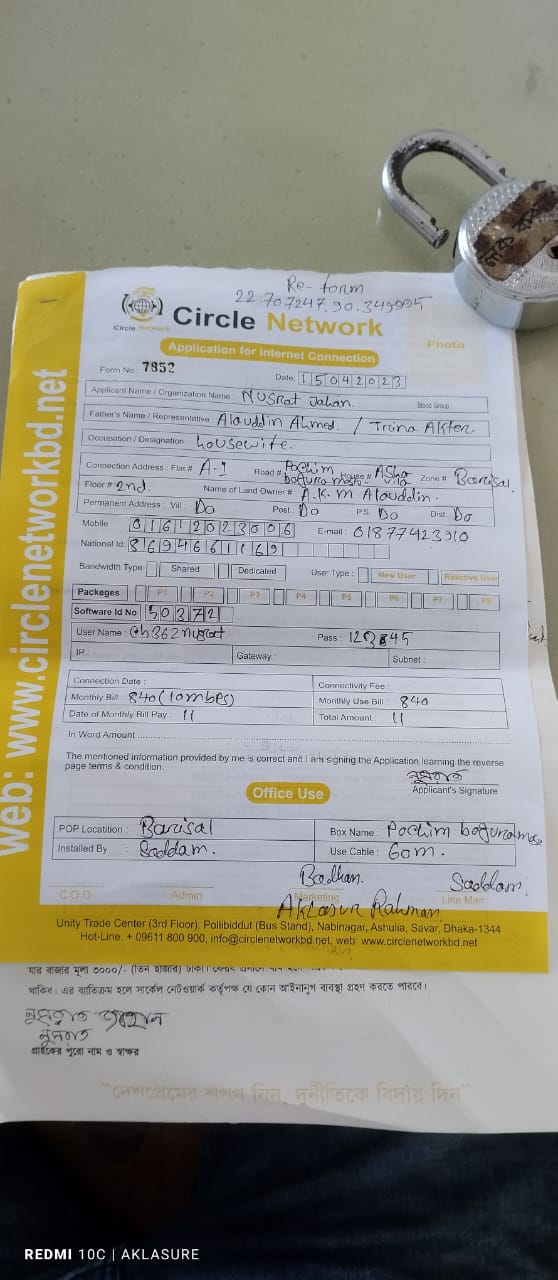 Re-form
22.707247.90.349995
Circle Network
Circle Network
Photo
Application for Internet Connection
Form No : 7852
Date 15042023
Applicant Name / Organization Name : Nusrat Jahan. Blood Group
Father's Name / Representative Alauddin Ahmed. / Trina Akter
Occupation / Designation : housewife.
Connection Address : Flat # A-1 Road # Pochim bogura mosh. House # Asha vila Zone # Barisal.
Floor # 2nd. Name of Land Owner # A.K.M Alauddin.
Permanent Address : Vill : Do Post : Do PS : Do Dist: Do
Mobile 01612023006 E-mail : 01877423910
National Id: 8694661169
Bandwidth Type Shared Dedicated User Type : New User Reactive User
Packeges P1 P2 P3 P4 P5 P6 P7 P8
Software Id No 50372
User Name : Pass :
IP : Gateway : Subnet :
Connection Date : Connectivity Fee :
Monthly Bill : 840 (10mbps) Monthly Use Bill : 840
Date of Monthly Bill Pay : 11 Total Amount : 11
In Word Amount
The mentioned information provided by me is correct and I am signing the Application learning the reverse
page terms & condition.
নুসরাত
Applicant's Signature
Office Use
POP Locatition : Barisal Box Name : Pochim bogura mosh
Installed By : Saddam. Use Cable : 60m.
Badhan. Saddam.
C.O.O Admin Marketing Line Man
Aklasur Rahman
Unity Trade Center (3rd Floor), Pollibiddut (Bus Stand), Nabinagar, Ashulia, Savar, Dhaka-1344
Hot-Line: + 09611 800 900, info@circlenetworkbd.net, web: www.circlenetworkbd.net
web: www.circlenetworkbd.net
যার বাজার মূল্য ৩০০০/- (তিন হাজার) টাকা।
থাকিব। এর ব্যতিক্রম হলে সার্কেল নেটওয়ার্ক কর্তৃপক্ষ যে কোন আইনানুগ ব্যবস্থা গ্রহণ করতে পারবে।
নুসরাত জাহান
নুসরাত
গ্রাহকের পুরো নাম ও স্বাক্ষর
"দেশপ্রেমের শপথ নিন, দুর্নীতিকে বিদায় দিন"
REDMI 10C | AKLASURE